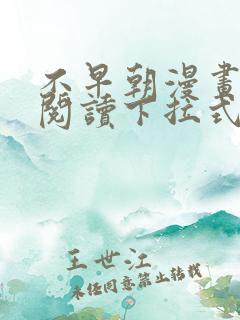 不早朝漫畫
閱讀下拉式
王世江
未經同意禁止轉載